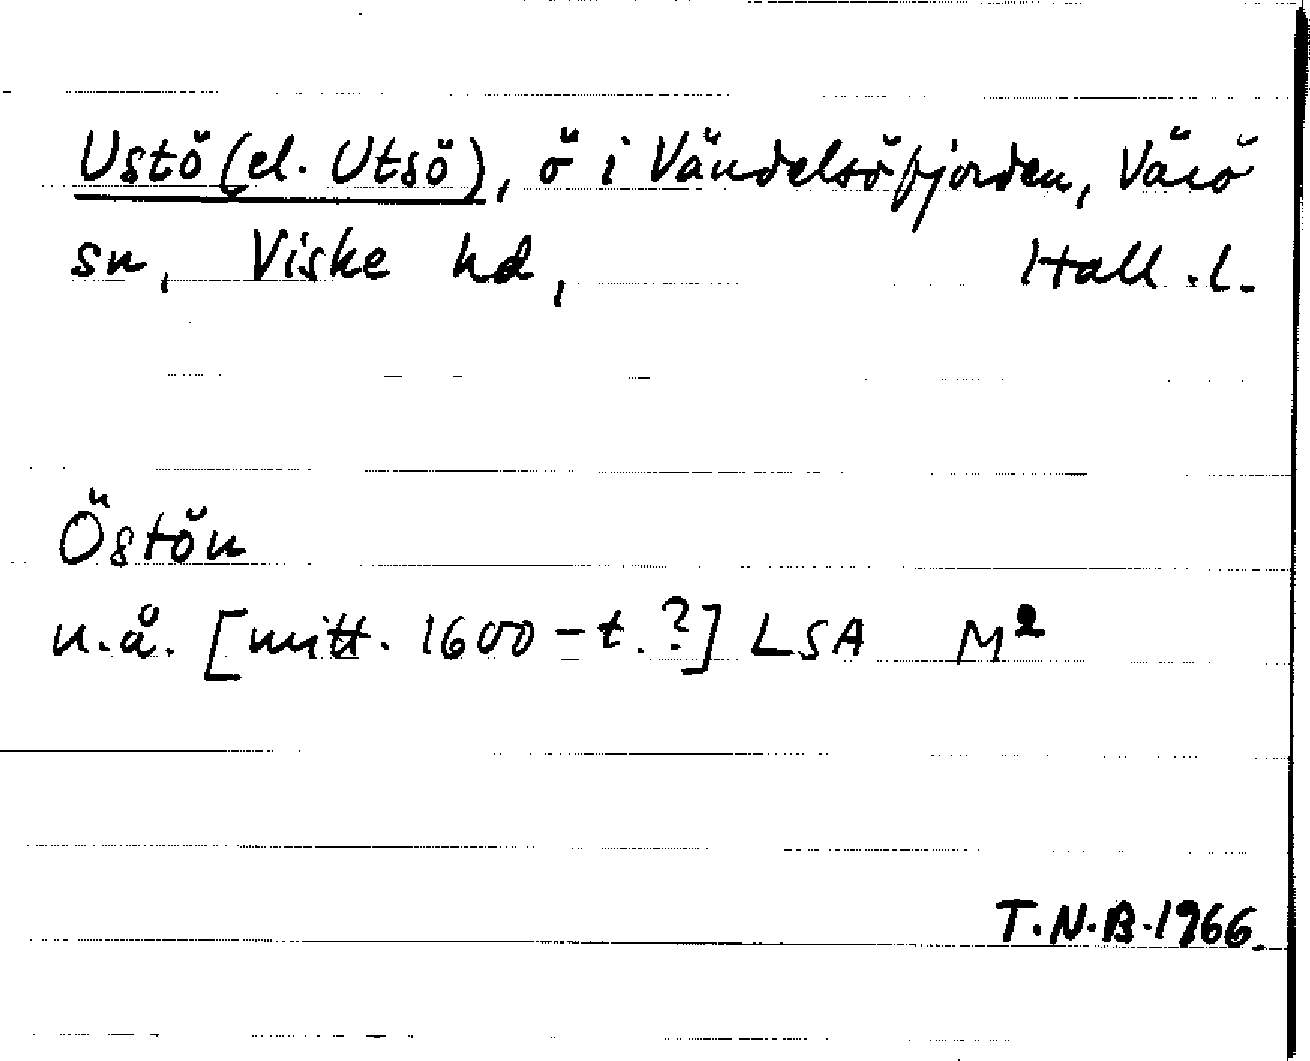 Ustö (el. Utsö), ö i Vändelsöfjorden, Värö
sn, Viske hd, Hall. l.
Östön
n.å. [mitt. 1600-t.?] LSA M²
T.N.B. 1966.